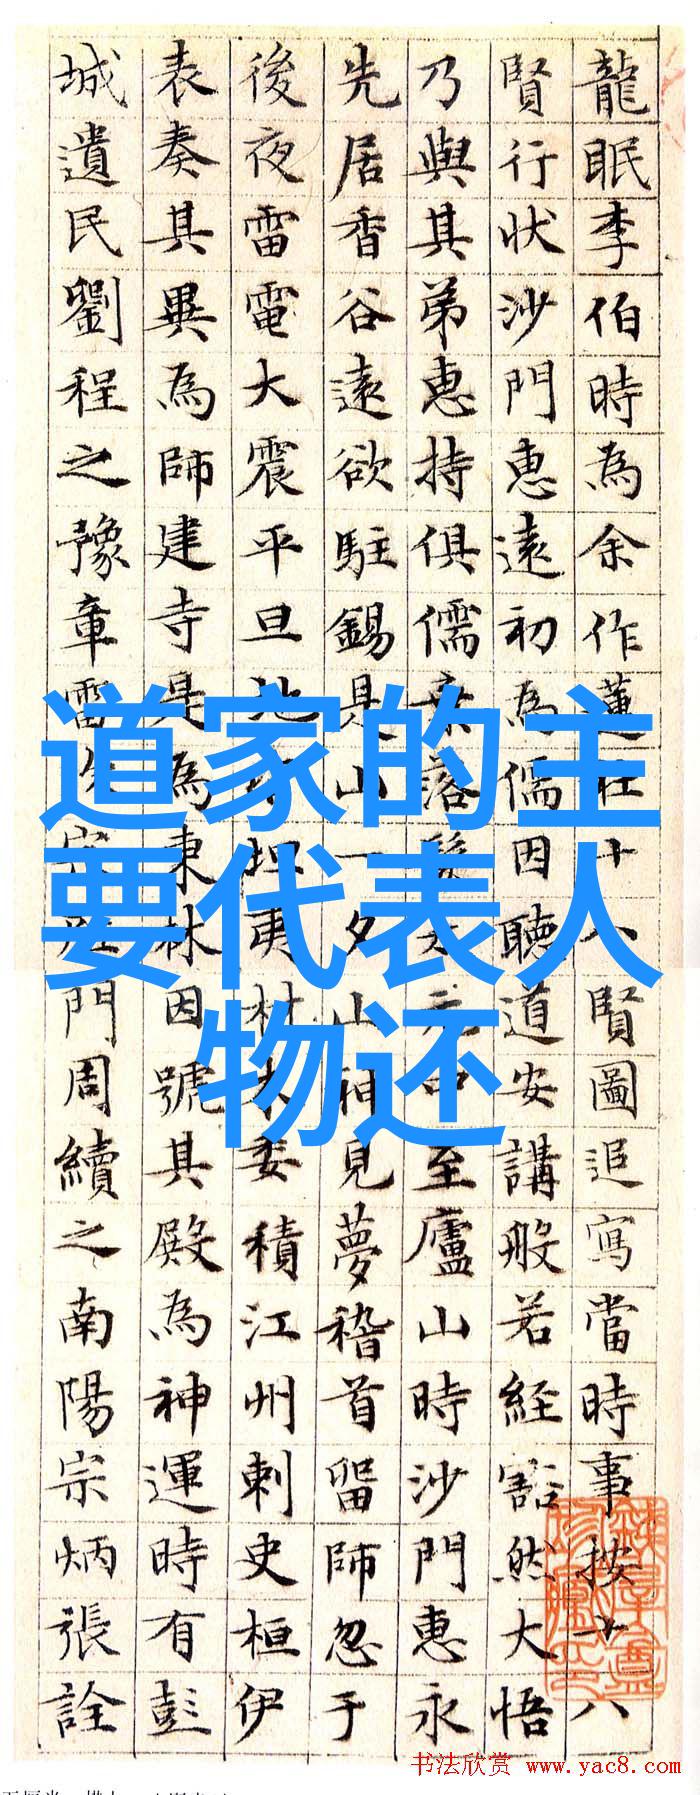 龍眠李伯時為余作蓮社十八賢圖追寫當時事按十八
賢行狀沙門惠遠初為儒因聽道安講般若経豁然大悟
乃與其弟惠持俱儒棄落髮太元中至廬山時沙門惠永
先居香谷遠欲駐錫是山一夕山神見夢稽首留師忽于
後夜雷電大震平旦地坦夷材木委積江州刺史桓伊
表奏其異為師建寺是為東林因號其殿為神運時有彭
城遺民劉程之豫章雷次宗門周續之南陽宗炳張詮
道家的主
要代表人
物还
书法欣赏 www.yac8.com